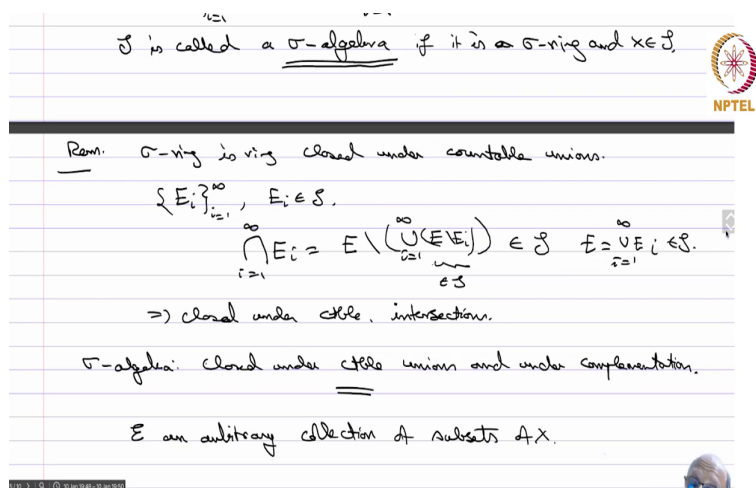 i=1
S is called a σ-algebra if it is a σ-ring and X ∈ S.
NPTEL
Rem. σ-ring is ring closed under countable unions.
{E_i}_{i=1}^∞, E_i ∈ S.
∩_{i=1}^∞ E_i = E \ (∪_{i=1}^∞ (E\E_i)) ∈ S E = ∪_{i=1}^∞ E_i ∈ S.
∈ S
=> closed under ctble. intersections.
σ-algebra: closed under ctble unions and under complementation.
E an arbitrary collection of subsets of X.